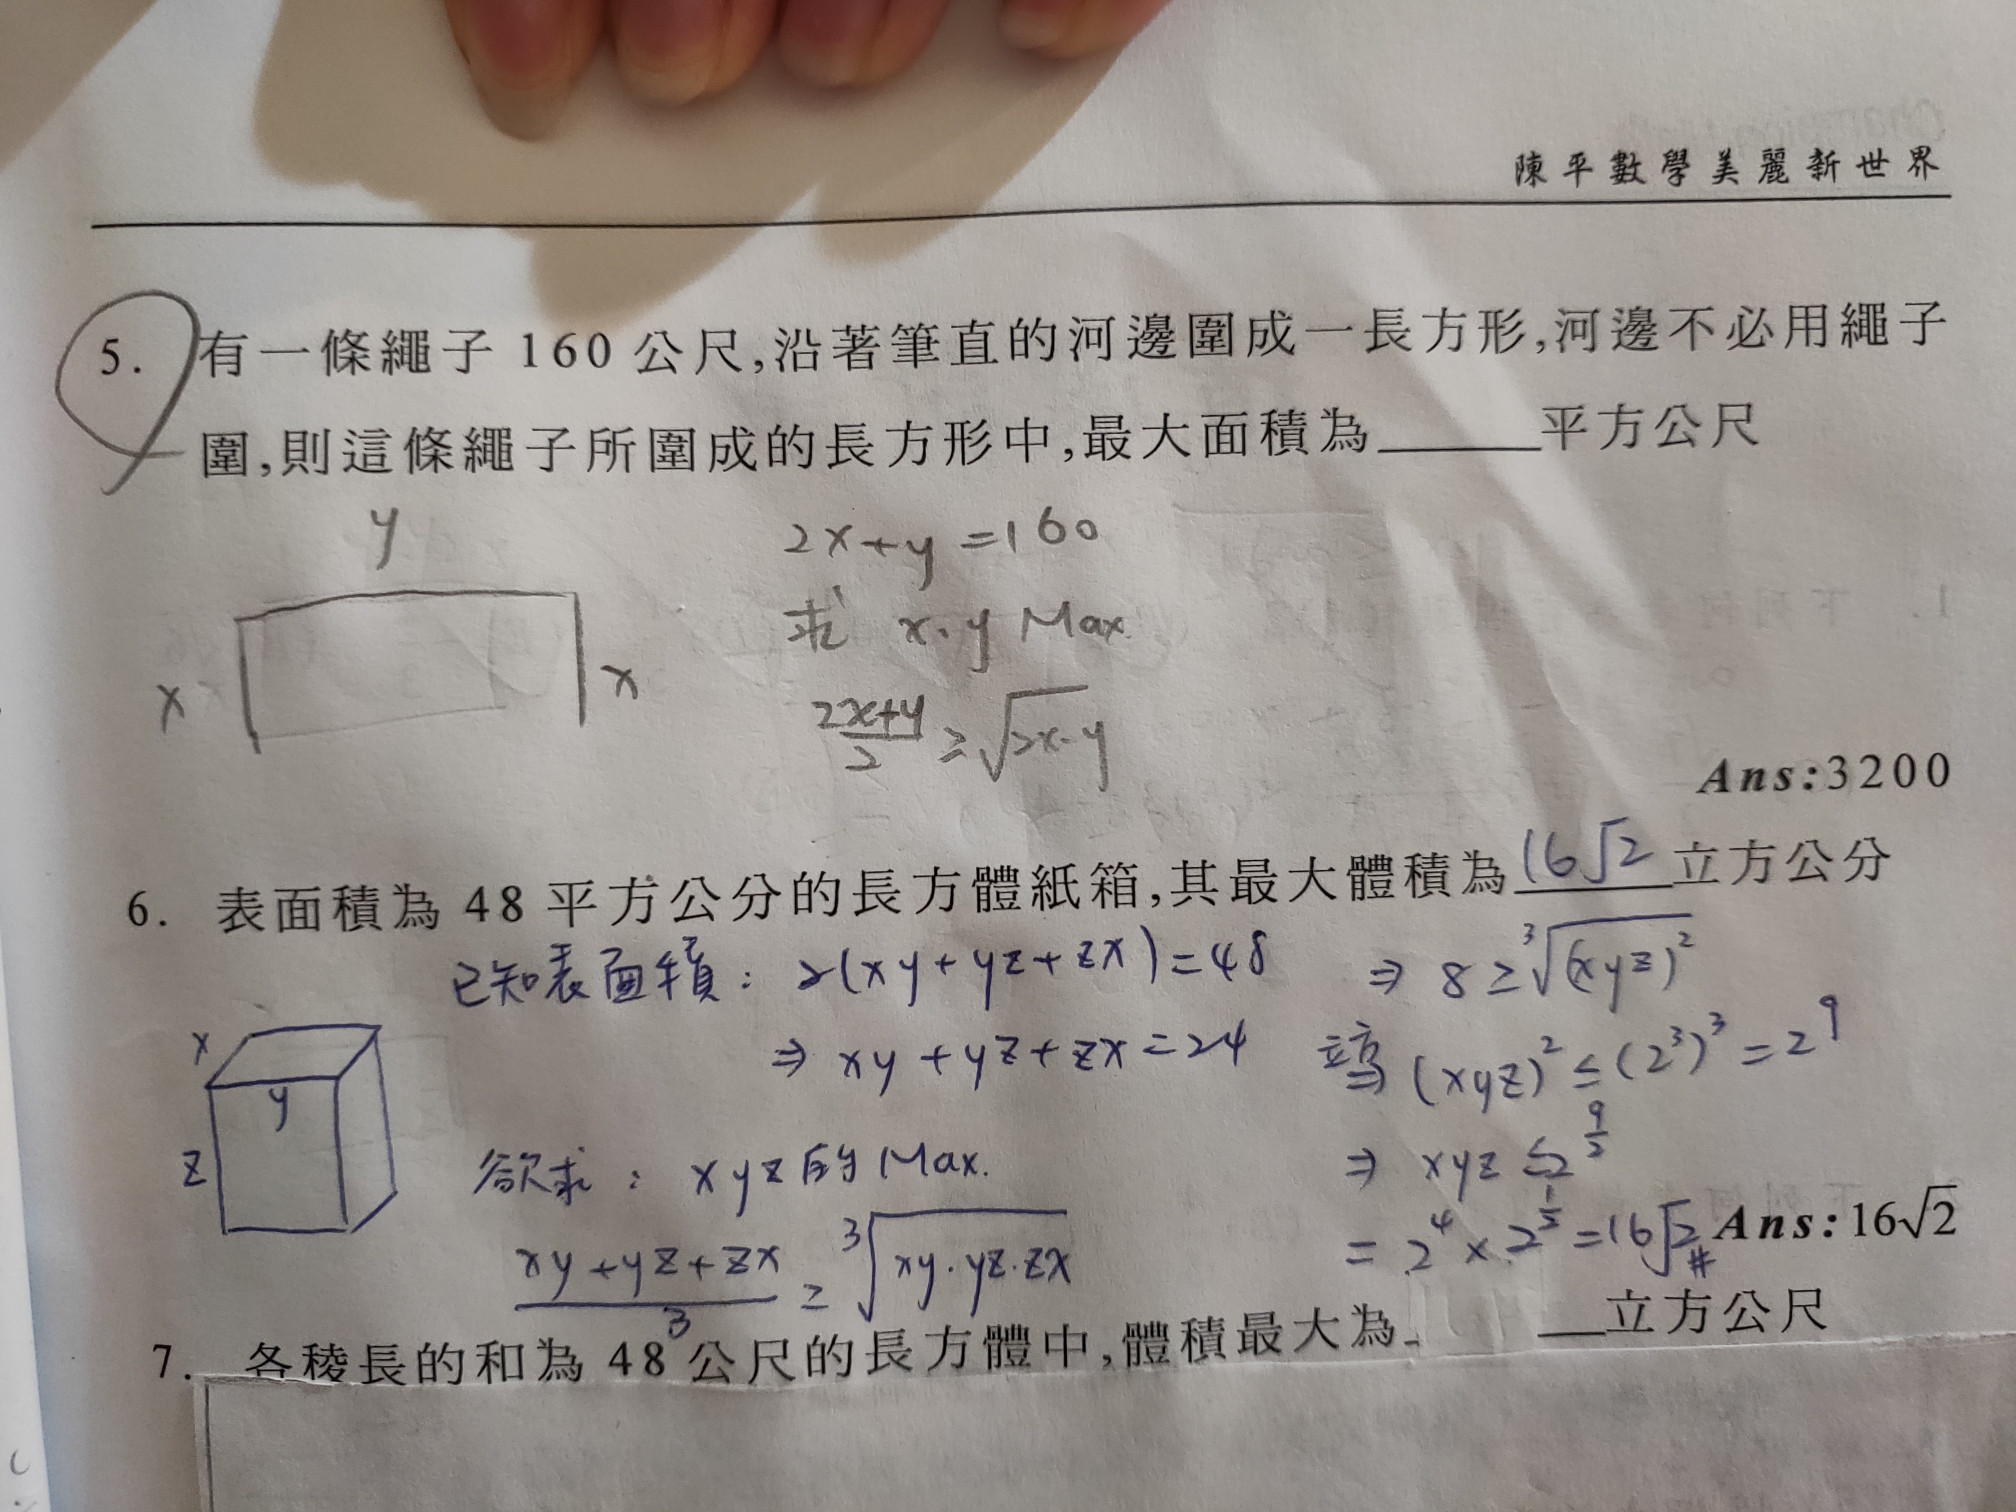 陳平數學美麗新世界
5. 有一條繩子 160 公尺,沿著筆直的河邊圍成一長方形,河邊不必用繩子
圍,則這條繩子所圍成的長方形中,最大面積為______平方公尺
y
x
x
2x+y=160
求 x.y Max.
(2x+y)/2 ≥ √(2x·y)
Ans:3200
6. 表面積為 48 平方公分的長方體紙箱,其最大體積為 16√2 立方公分
已知表面積: 2(xy+yz+zx)=48
⇒ xy+yz+zx=24
x
y
z
欲求: xyz的 Max.
(xy+yz+zx)/3 ≥ ³√(xy·yz·zx)
⇒ 8 ≥ ³√((xyz)²)
⇒ (xyz)² ≤ (2³)³ = 2⁹
⇒ xyz ≤ 2^(9/2)
= 2⁴ × 2^(1/2) = 16√2 #
Ans:16√2
7. 各稜長的和為 48 公尺的長方體中,體積最大為______立方公尺